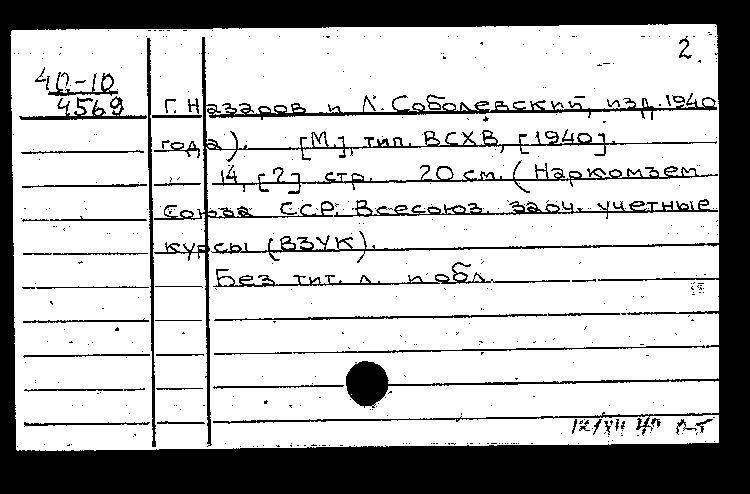 2.
40-10
4569
Г. Назаров и Л. Соболевский, изд. 1940
года). [М.], тип. ВСХВ, [1940].
14, [2] стр. 20 см. (Наркомзем
Союза ССР. Всесоюз. заоч. учетные
курсы (ВЗУК).
Без тит. л. и обл.
12/XII 40